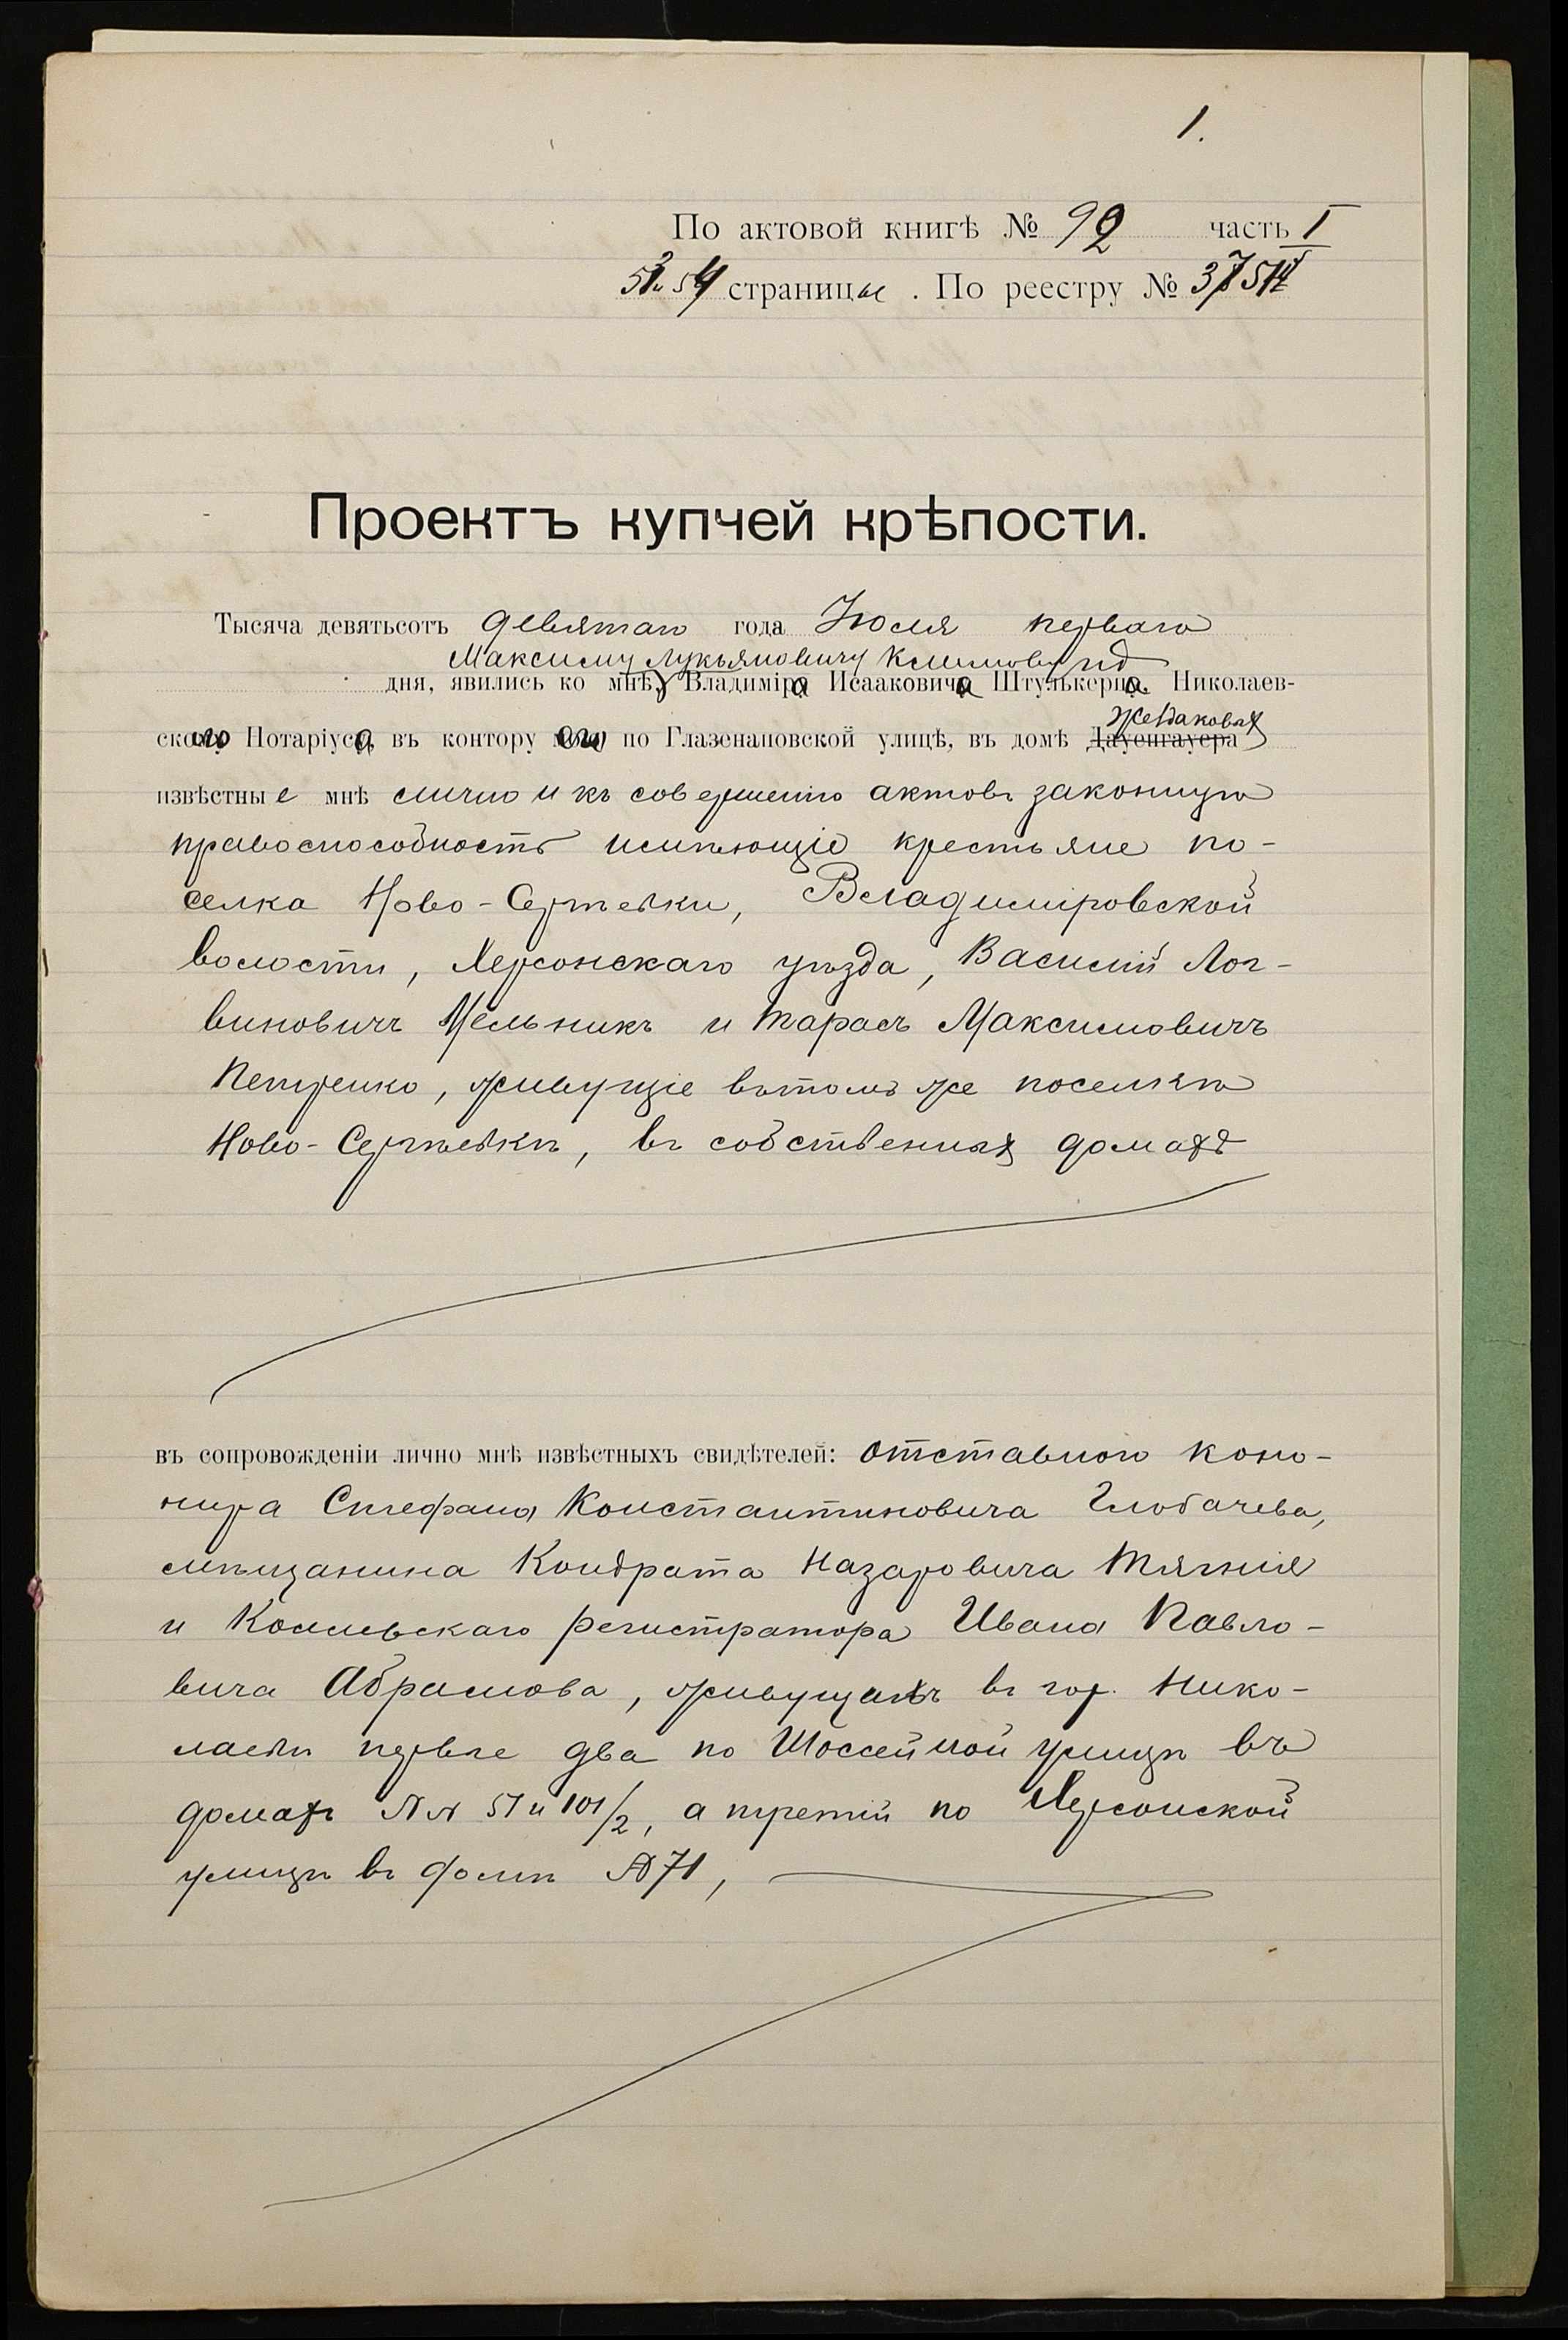 1.
По актовой книгѣ № 92 часть I
53 и 54 страницы . По реестру №
Проектъ купчей крѣпости.
Тысяча девятьсотъ девятаго года Іюля перваго
Максиму Лукьяновичу Климову ид
дня, явились ко мнѣ, Владиміра Исааковича Штулькерца Николаев-
Жедаковых
скаго Нотаріуса, въ контору его по Глазенаповской улицѣ, въ домѣ Дауенгауера
извѣстные мнѣ лично и къ совершенію актовъ законную
правоспособность имѣющіе крестьяне по-
селка Ново-Сергѣевки, Владиміровской
волости, Херсонскаго уѣзда, Василій Лог-
виновичъ Мельникъ и Тарасъ Максимовичъ
Петренко, живущіе въ томъ же поселкѣ
Ново-Сергѣевкѣ, въ собственных домахъ
въ сопровожденіи лично мнѣ извѣстныхъ свидѣтелей: отставного коно-
нира Стефана Константиновича Глобачева,
мѣщанина Кондрата Назаровича Тягнія
и Коллежскаго регистратора Ивана Павло-
вича Абрамова, живущихъ въ гор. Нико-
лаевѣ первые два по Шоссейной улицѣ въ
домахъ №№ 51 и 101/2, а третій по Херсонской
улицѣ въ домѣ № 71,